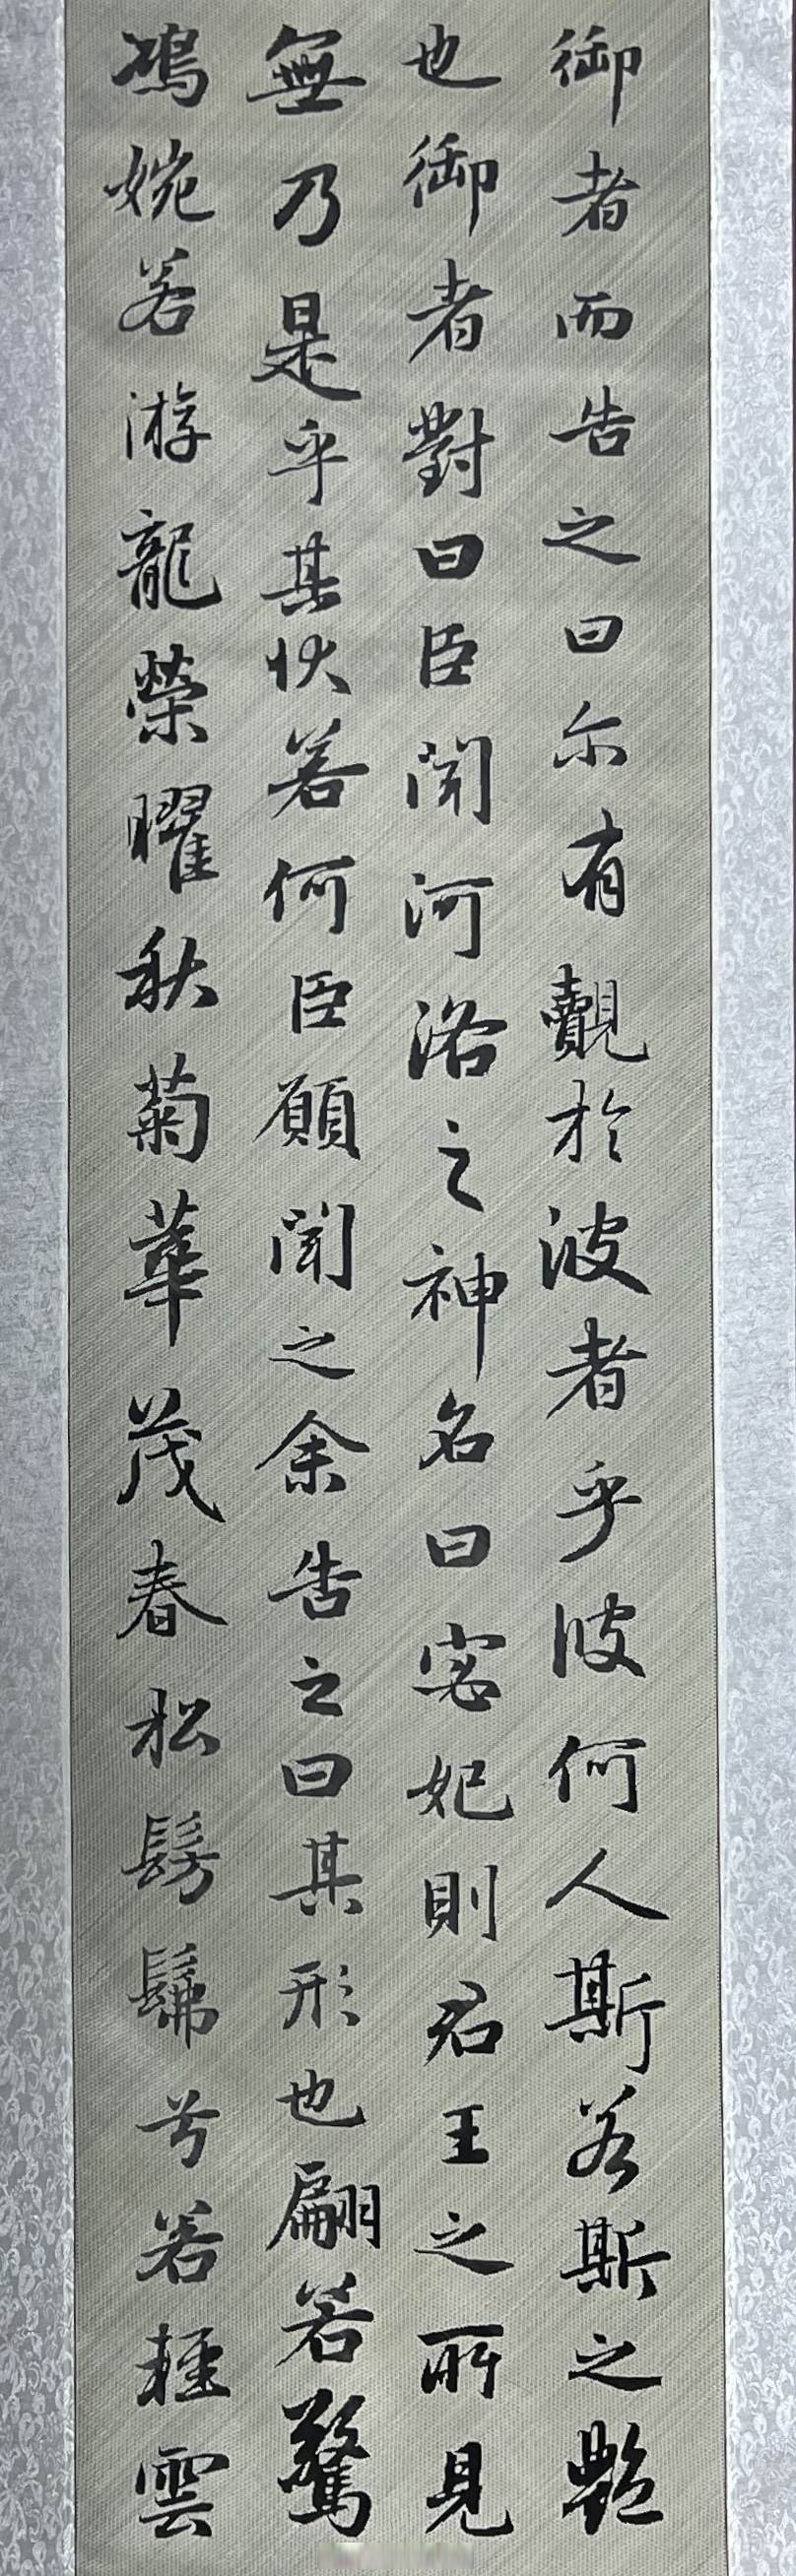 御者而告之曰尔有覿於彼者乎彼何人斯若斯之艷
也御者對曰臣聞河洛之神名曰宓妃則君王之所見
無乃是乎其狀若何臣願聞之余告之曰其形也翩若驚
鴻婉若游龍榮曜秋菊華茂春松髣髴兮若輕雲